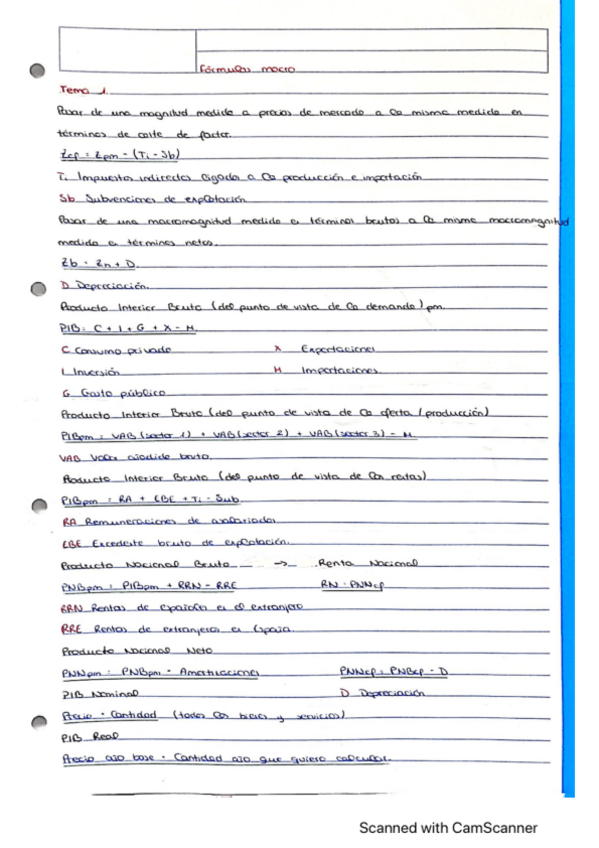 Fórmulas macro
Tema 1.
Pasar de una magnitud medida a precios de mercado a la misma medida en
términos de coste de factor.
Zcf = Zpm - (Ti - Sb)
Ti Impuestos indirectos ligados a la producción e importación
Sb Subvenciones de explotación
Pasar de una macromagnitud medida a términos brutos a la misma macromagnitud
medida a términos netos.
Zb = Zn + D.
D Depreciación.
Producto Interior Bruto (del punto de vista de la demanda) pm.
PIB = C + I + G + X - M.
C Consumo privado X Exportaciones
I Inversión M Importaciones
G Gasto público
Producto Interior Bruto (del punto de vista de la oferta / producción)
PIBpm = VAB (sector 1) + VAB (sector 2) + VAB (sector 3) - M
VAB Valor añadido bruto.
Producto Interior Bruto (del punto de vista de las rentas)
PIBpm = RA + EBE + Ti - Sub.
RA Remuneraciones de asalariados
EBE Excedente bruto de explotación.
Producto Nacional Bruto -> Renta Nacional
PNBpm = PIBpm + RRN - RRE RN = PNNcf
RRN Rentas de españoles en el extranjero
RRE Rentas de extranjeros en España.
Producto Nacional Neto
PNNpm = PNBpm - Amortizaciones PNNcf = PNBcf - D
PIB Nominal D Depreciación
Precio · Cantidad (todos los bienes y servicios)
PIB Real
Precio año base · Cantidad año que quiero calcular.
Scanned with CamScanner